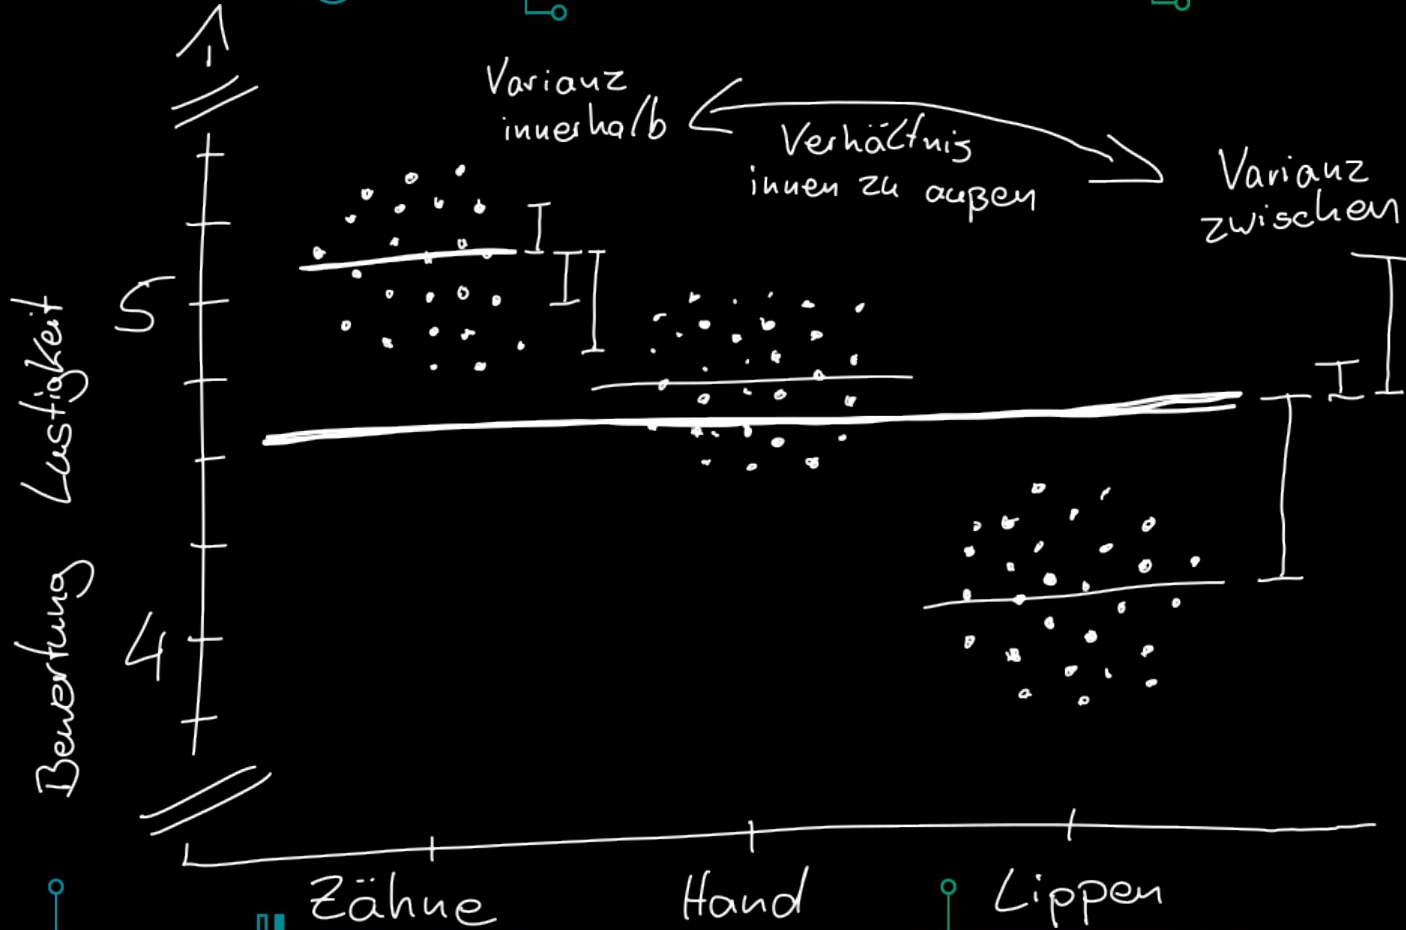 Varianz
innerhalb
Verhältnis
innen zu außen
Varianz
zwischen
Bewertung Lustigkeit
5
4
Zähne
Hand
Lippen